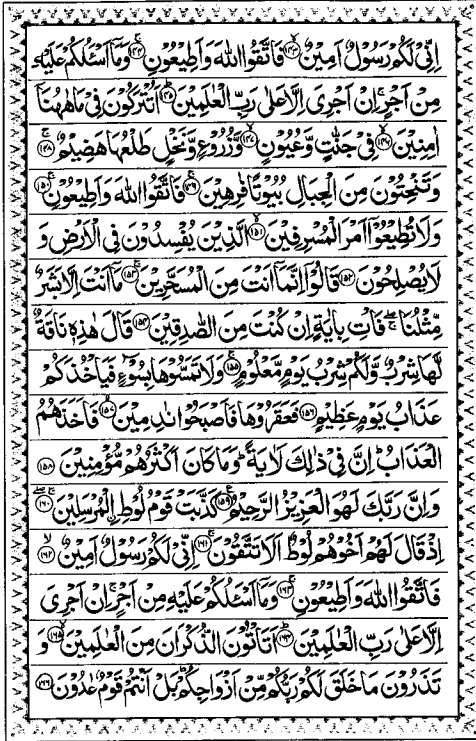 اِنِّیْ لَكُمْ رَسُوْلٌ اَمِیْنٌ ﴿۱۴۳﴾ فَاتَّقُوا اللّٰهَ وَاَطِیْعُوْنِ ﴿۱۴۴﴾ وَمَاۤ اَسْـَٔلُكُمْ عَلَیْهِ
مِنْ اَجْرٍ اِنْ اَجْرِیَ اِلَّا عَلٰی رَبِّ الْعٰلَمِیْنَ ﴿۱۴۵﴾ اَتُتْرَكُوْنَ فِیْ مَا هٰهُنَاۤ
اٰمِنِیْنَ ﴿۱۴۶﴾ فِیْ جَنّٰتٍ وَّعُیُوْنٍ ﴿۱۴۷﴾ وَّزُرُوْعٍ وَّنَخْلٍ طَلْعُهَا هَضِیْمٌ ﴿۱۴۸﴾
وَتَنْحِتُوْنَ مِنَ الْجِبَالِ بُیُوْتًا فٰرِهِیْنَ ﴿۱۴۹﴾ فَاتَّقُوا اللّٰهَ وَاَطِیْعُوْنِ ﴿۱۵۰﴾
وَلَا تُطِیْعُوْۤا اَمْرَ الْمُسْرِفِیْنَ ﴿۱۵۱﴾ الَّذِیْنَ یُفْسِدُوْنَ فِی الْاَرْضِ وَ
لَا یُصْلِحُوْنَ ﴿۱۵۲﴾ قَالُوْۤا اِنَّمَاۤ اَنْتَ مِنَ الْمُسَحَّرِیْنَ ﴿۱۵۳﴾ مَاۤ اَنْتَ اِلَّا بَشَرٌ
مِّثْلُنَا ۚ فَاْتِ بِاٰیَةٍ اِنْ كُنْتَ مِنَ الصّٰدِقِیْنَ ﴿۱۵۴﴾ قَالَ هٰذِهٖ نَاقَةٌ
لَّهَا شِرْبٌ وَّلَكُمْ شِرْبُ یَوْمٍ مَّعْلُوْمٍ ﴿۱۵۵﴾ وَلَا تَمَسُّوْهَا بِسُوْٓءٍ فَیَاْخُذَكُمْ
عَذَابُ یَوْمٍ عَظِیْمٍ ﴿۱۵۶﴾ فَعَقَرُوْهَا فَاَصْبَحُوْا نٰدِمِیْنَ ﴿۱۵۷﴾ فَاَخَذَهُمُ
الْعَذَابُ ؕ اِنَّ فِیْ ذٰلِكَ لَاٰیَةً ؕ وَمَا كَانَ اَكْثَرُهُمْ مُّؤْمِنِیْنَ ﴿۱۵۸﴾
وَاِنَّ رَبَّكَ لَهُوَ الْعَزِیْزُ الرَّحِیْمُ ﴿۱۵۹﴾ كَذَّبَتْ قَوْمُ لُوْطِ ِۣالْمُرْسَلِیْنَ ﴿۱۶۰﴾
اِذْ قَالَ لَهُمْ اَخُوْهُمْ لُوْطٌ اَلَا تَتَّقُوْنَ ﴿۱۶۱﴾ اِنِّیْ لَكُمْ رَسُوْلٌ اَمِیْنٌ ﴿۱۶۲﴾
فَاتَّقُوا اللّٰهَ وَاَطِیْعُوْنِ ﴿۱۶۳﴾ وَمَاۤ اَسْـَٔلُكُمْ عَلَیْهِ مِنْ اَجْرٍ اِنْ اَجْرِیَ
اِلَّا عَلٰی رَبِّ الْعٰلَمِیْنَ ﴿۱۶۴﴾ اَتَاْتُوْنَ الذُّكْرَانَ مِنَ الْعٰلَمِیْنَ ﴿۱۶۵﴾ وَ
تَذَرُوْنَ مَا خَلَقَ لَكُمْ رَبُّكُمْ مِّنْ اَزْوَاجِكُمْ ؕ بَلْ اَنْتُمْ قَوْمٌ عٰدُوْنَ ﴿۱۶۶﴾